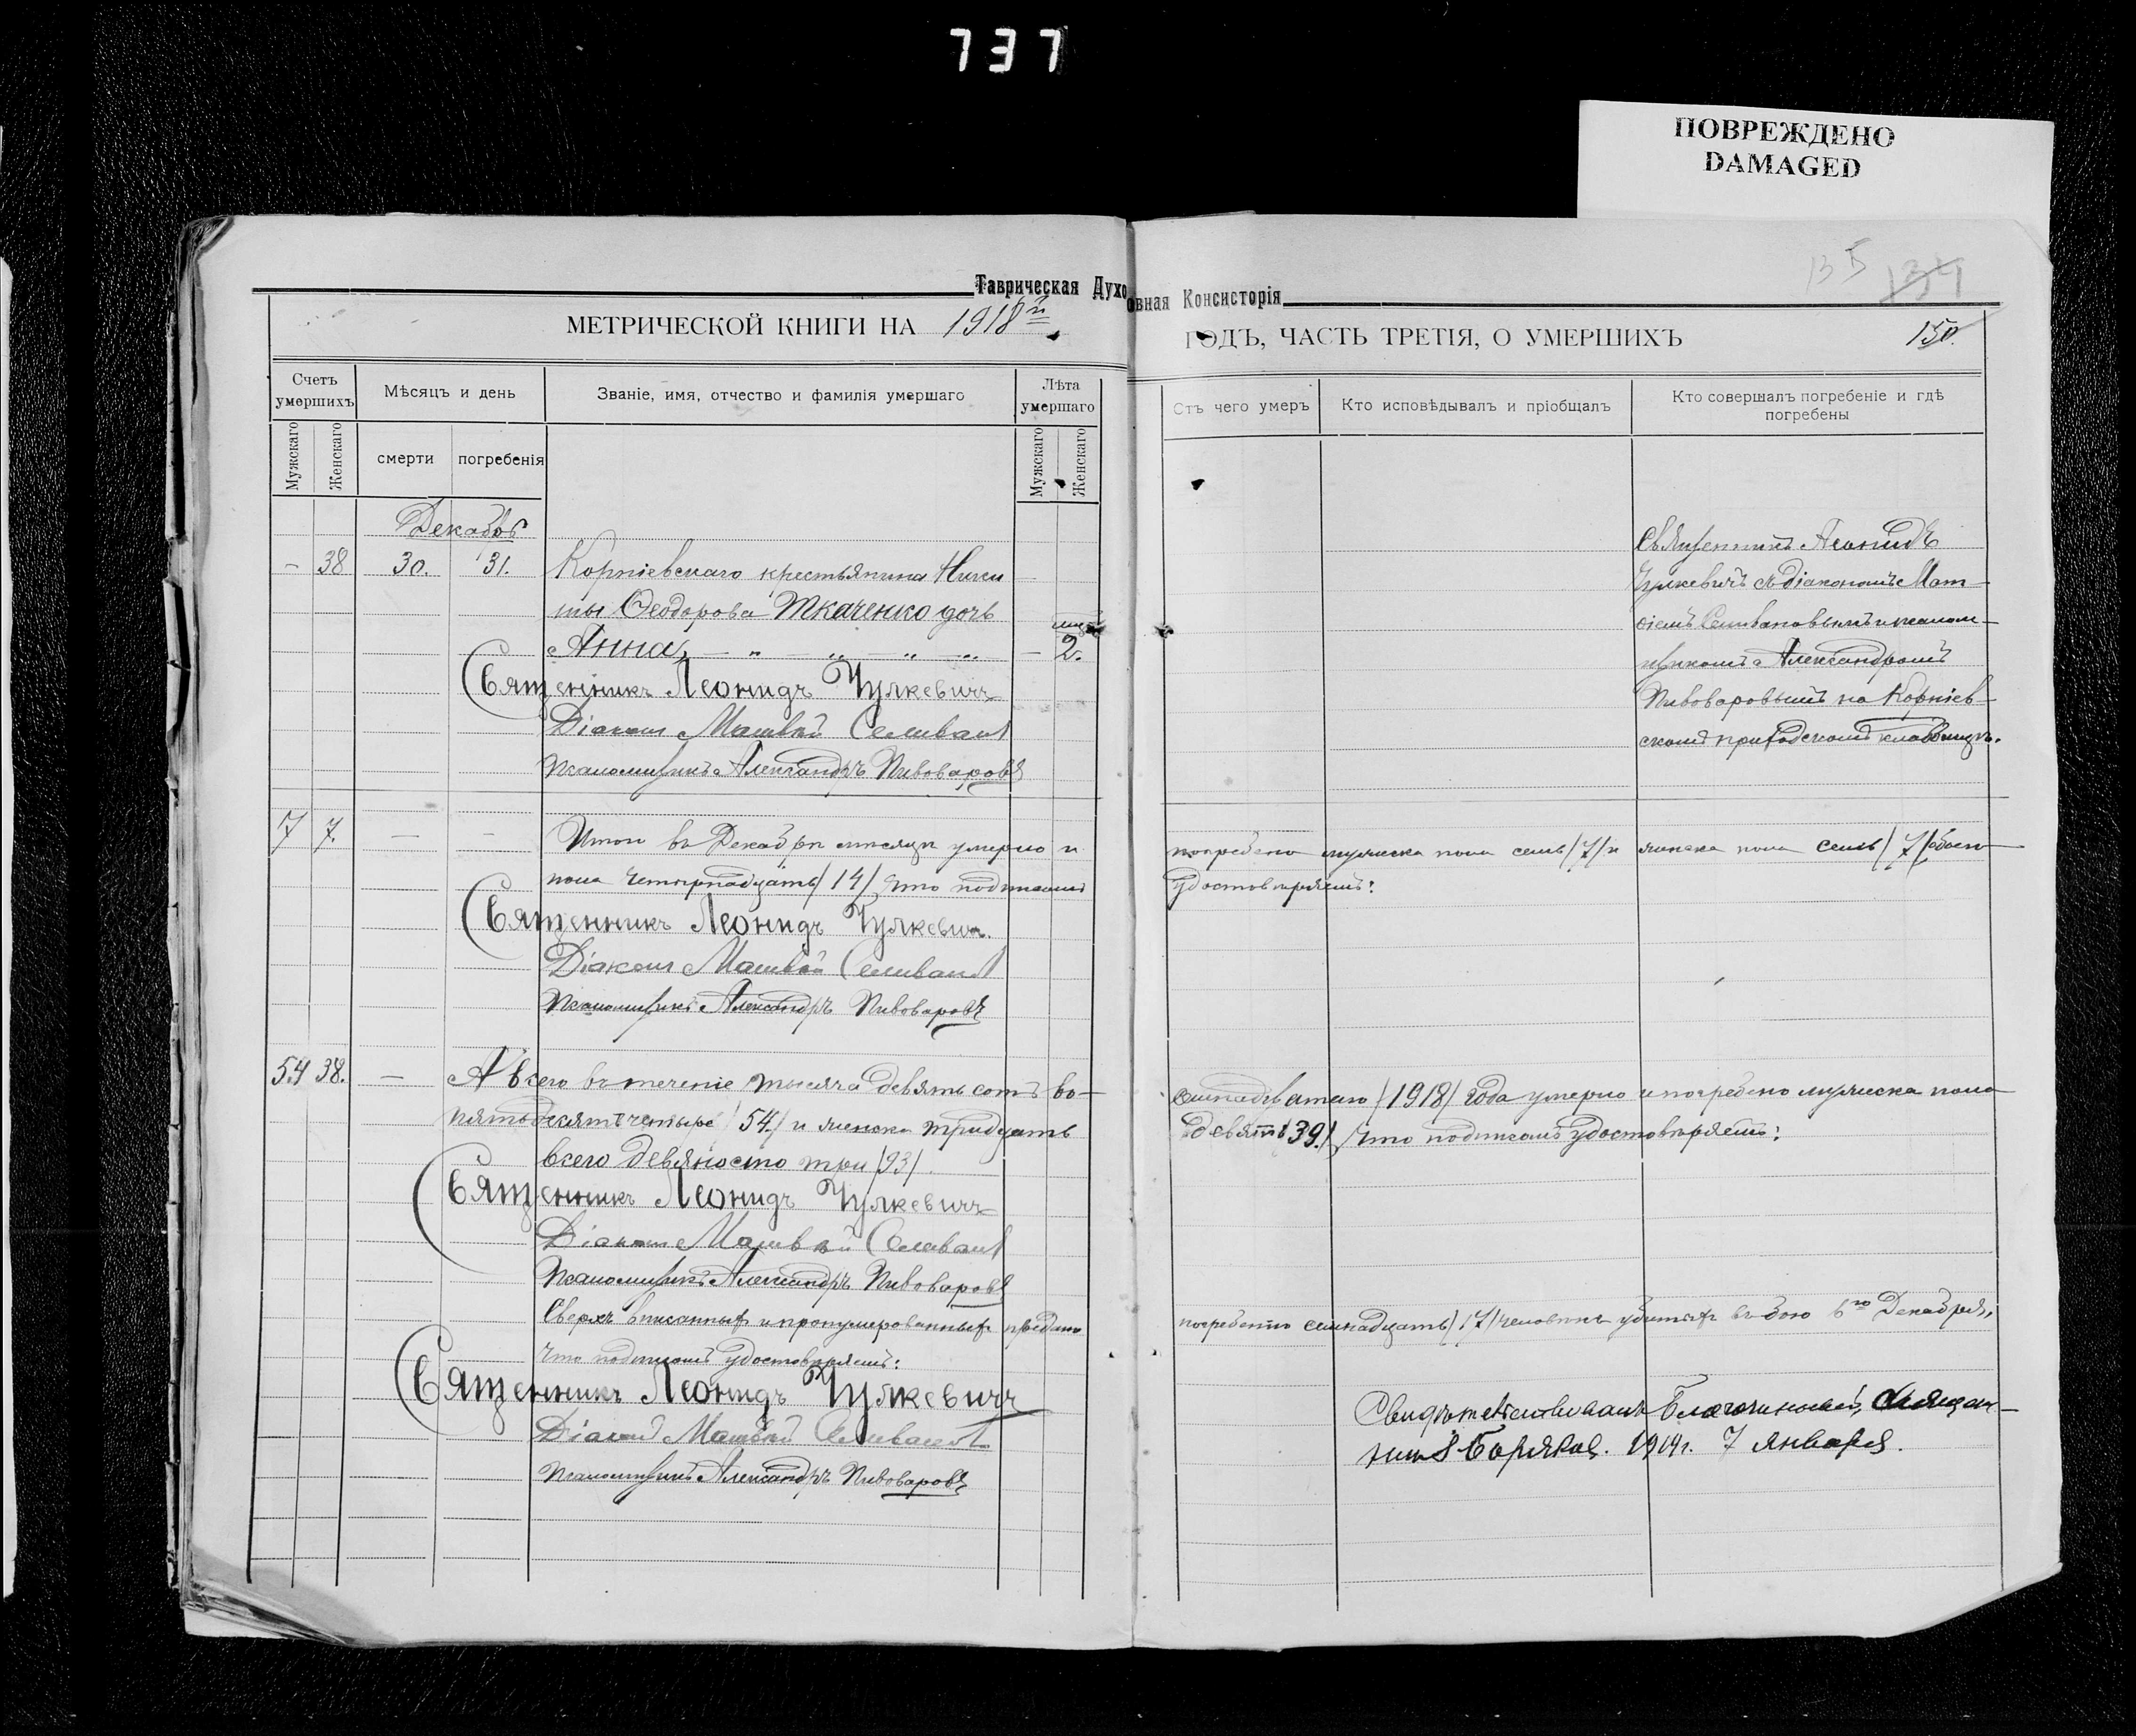 737
ПОВРЕЖДЕНО
DAMAGED
135 134
Таврическая Духовная Консисторія
МЕТРИЧЕСКОЙ КНИГИ НА 1918й ГОДЪ, ЧАСТЬ ТРЕТІЯ, О УМЕРШИХЪ
150.
Счетъ умершихъ
Мужскаго
Женскаго
Мѣсяцъ и день
смерти
погребенія
Званіе, имя, отчество и фамилія умершаго
Лѣта умершаго
Мужскаго
Женскаго
Отъ чего умеръ
Кто исповѣдывалъ и пріобщалъ
Кто совершалъ погребеніе и гдѣ погребены
Декабрь
- 38 30. 31. Корніевскаго крестьянина Ники
ты Ѳеодорова Ткаченко дочь
Анна, 2.
Священникъ Леонидъ Чулкевичъ
Діаконъ Матвѣй Селивановъ
Псаломщикъ Александръ Пивоваровъ
Священникъ Леонидъ
Чулкевичъ съ діакономъ Мат-
ѳіемъ Селивановымъ и псалом-
щикомъ Александромъ
Пивоваровымъ на Корніев-
скомъ приходскомъ кладбищѣ.
7 7. — — Итого въ Декабрѣ мѣсяцѣ умерло и погребено мужска пола семь /7/ и женска пола семь /7/ обоего
пола четырнадцать /14/ что подписомъ удостовѣряемъ:
Священникъ Леонидъ Чулкевичъ.
Діаконъ Матвѣй Селивановъ
Псаломщикъ Александръ Пивоваровъ
54 38. — А всего въ теченіе тысяча девятьсотъ во-семнадцатаго /1918/ года умерло и погребено мужска пола
пятьдесятъ четыре /54./ и женска тридцать девять /39./ Что подписомъ удостовѣряемъ:
всего девяносто три /93/.
Священникъ Леонидъ Чулкевичъ
Діаконъ Матвѣй Селивановъ
Псаломщикъ Александръ Пивоваровъ
Сверхъ вписанныхъ и пронумерованныхъ предано погребенію семнадцать /17/ человѣкъ убитыхъ въ бою 6го Декабря,
что подписомъ удостовѣряемъ:
Священникъ Леонидъ Чулкевичъ
Діаконъ Матвѣй Селивановъ
Псаломщикъ Александръ Пивоваровъ
Свидѣтельствовалъ Благочинный, Священ-
никъ 1919г. 7 января.